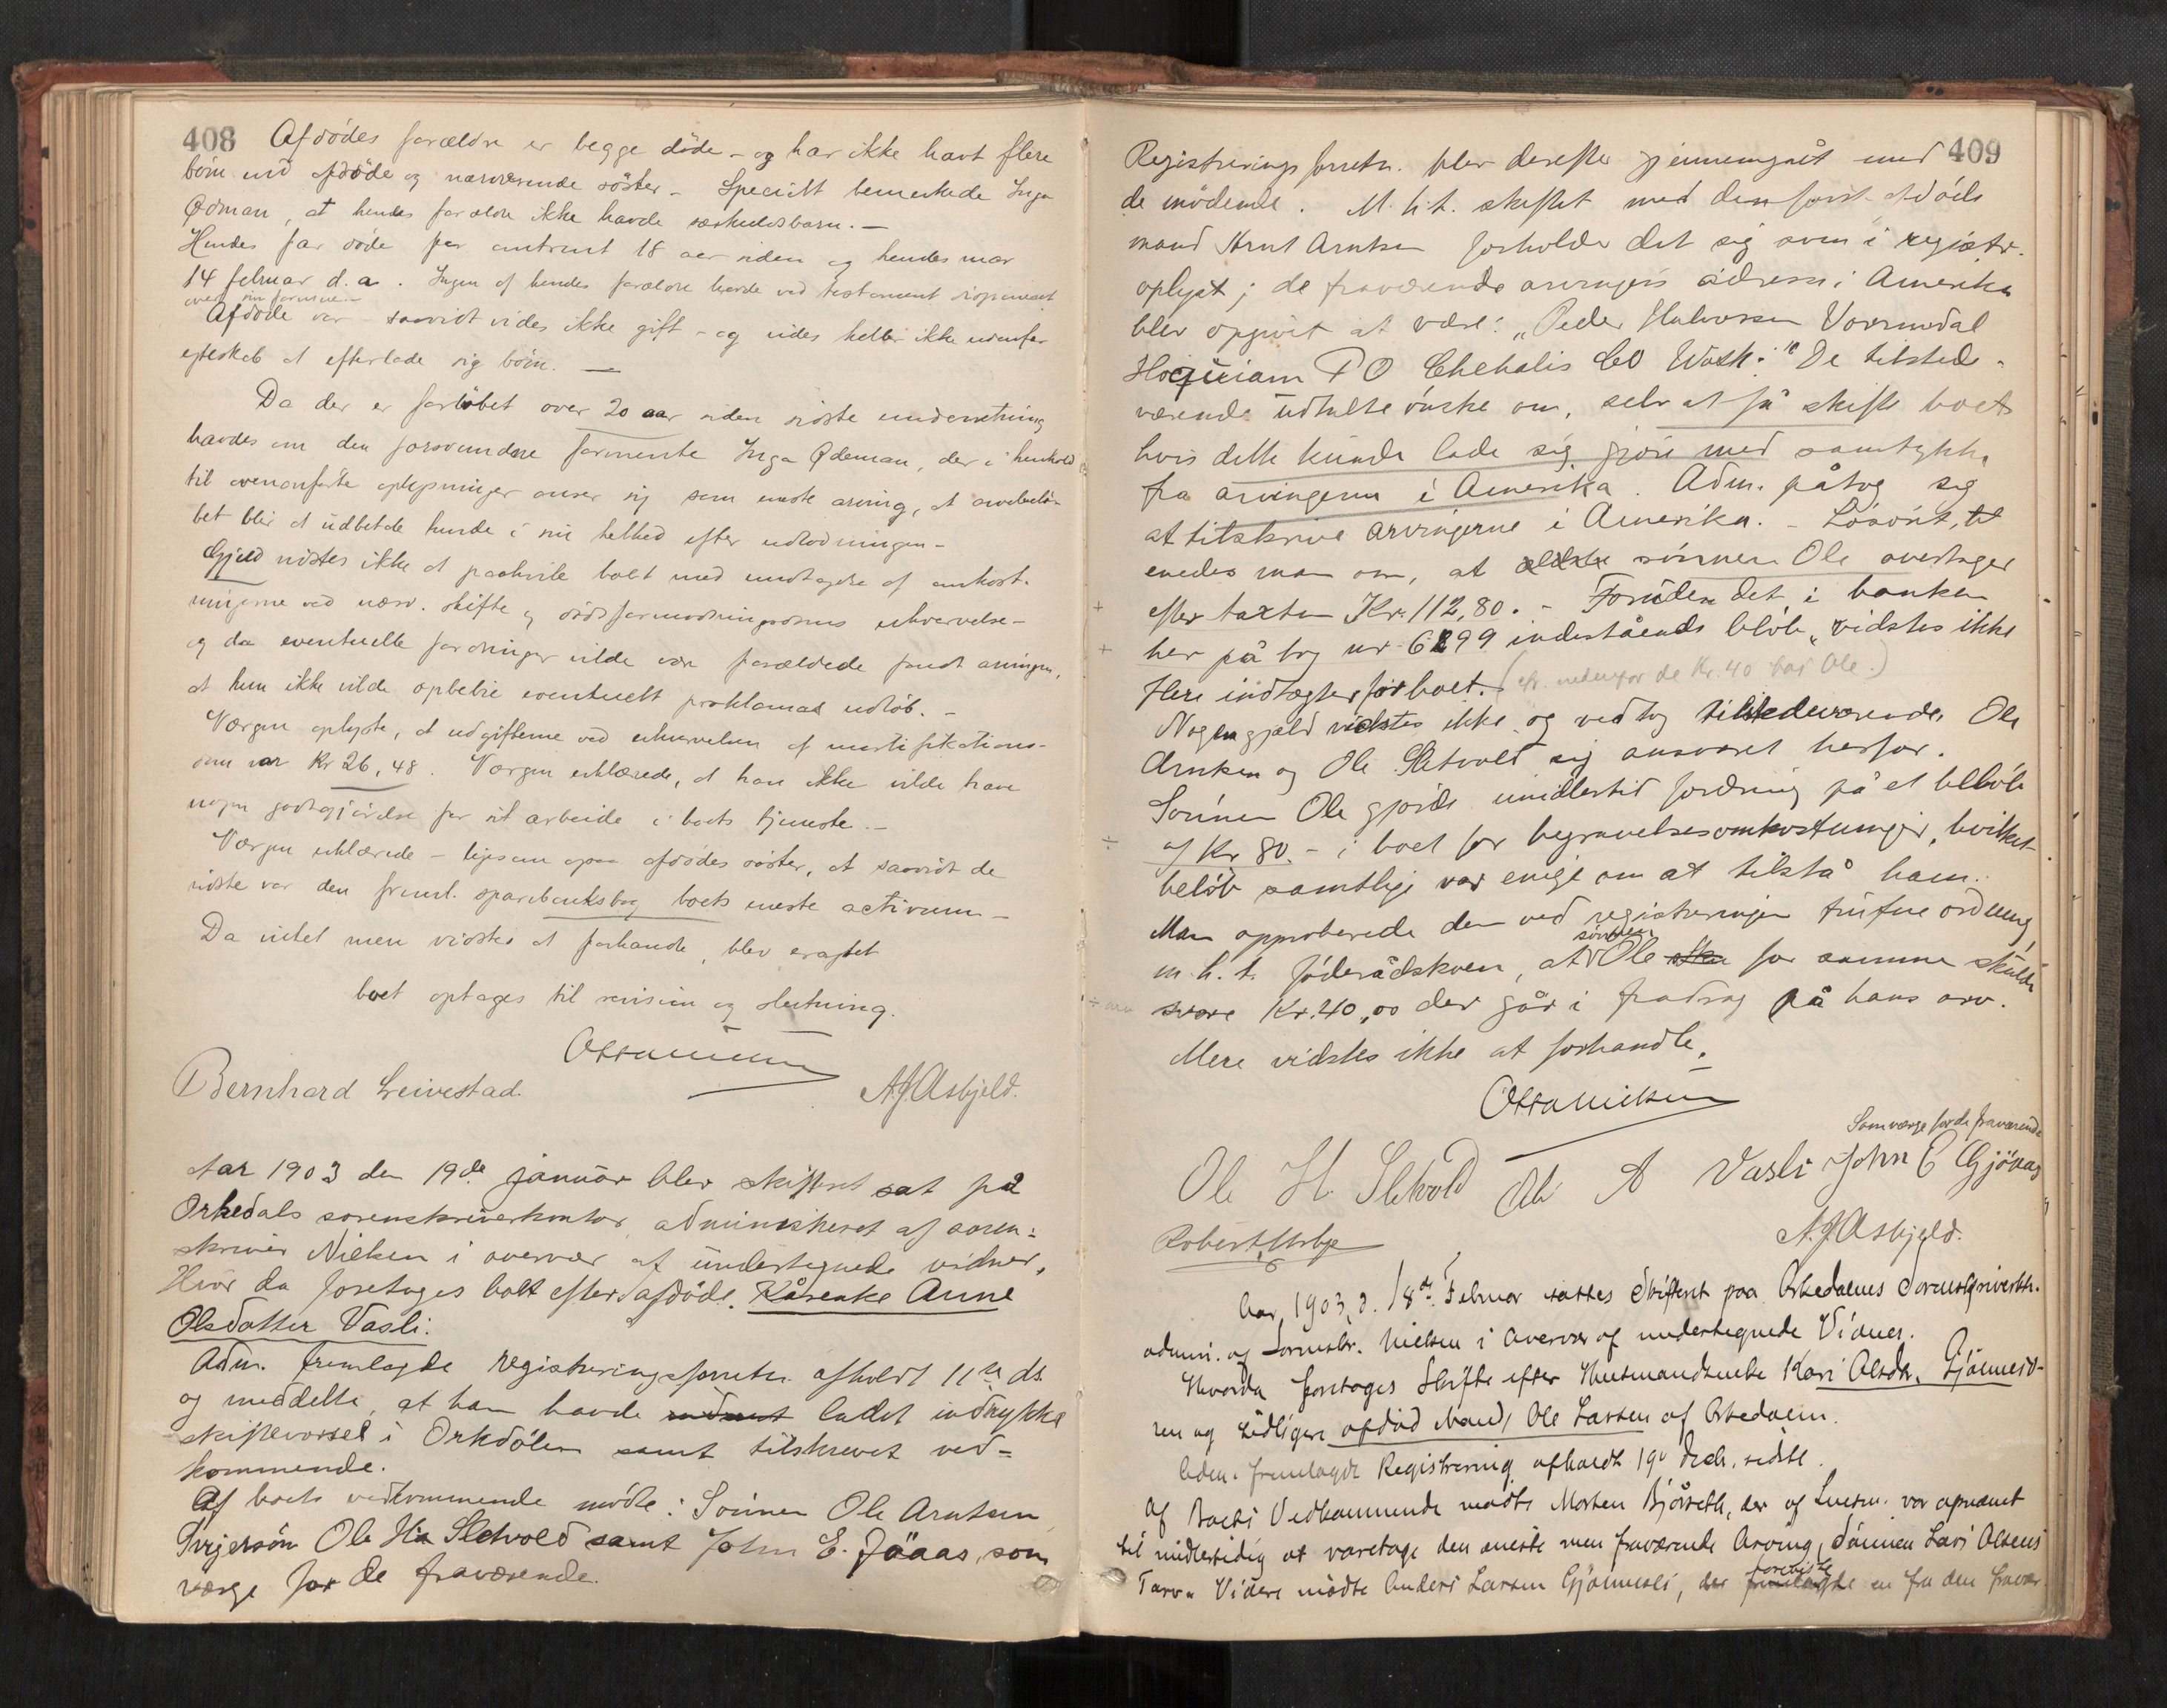 408
Afdödes forældre er begge döde - og har ikke havt flere
börn end afdöde og nærværende söster - Specielt bemerkede Inga
Ødman, at hendes forældre ikke havde særkuldsbarn. -
Hendes far döde for omtrent 18 aar siden og hendes mor
14 februar d.a. Ingen af hendes forældre havde ved testament disponeret
over sin formue. -
Afdöde var saavidt vides ikke gift - og vides heller ikke udenfor
egteskab at efterlade sig börn. -
Da der er forlöbet over 20 aar siden sidste underretning
havdes om den forsvundne formente Inga Ødeman, der i henhold
til ovenanförte oplysninger anser sig som eneste arving, at arvebelö-
bet blir at udbetale hende i sin helhed efter udlodningen -
Gjeld vistes ikke at paahvile boet med undtagelse af omkost-
ningerne ved nærv. skifte og dödsformodningsdoms erhvervelse -
og da eventuelle fordringer vilde være forældede fandt arvingen,
at hun ikke vilde opbebie eventuelt proklamas udlöb. -
Værgen oplyste, at udgifterne ved erhvervelsen af mortifikations-
dom var Kr 26,48. Værgen erklærede, at han ikke vilde have
nogen godtgjörelse for sit arbeide i boets tjeneste. -
Værgen erklærede - ligesom ogsaa afdödes söster, at saavidt de
vidste var den freml. sparebanksbog boets eneste activum -
Da intet mere vidstes at forhandle, blev eragtet
boet optages til revision og slutning.
Otto Nielsen
Bernhard Leivestad.
A J Asbjeld.
Aar 1903 den 19de januar blev skifteret sat på
Orkedals sorenskriverkontor administreret af soren-
skriver Nielsen i overvær af undertegnede vidner,
Hvor da foretoges boet efter afdöde Kårenke Anne
Olsdatter Vasli.
Adm. fremlagde registreringsforretn. afholdt 11te ds.
og meddelte, at han havde ladet indrykke
skiftevarsel i Orkdölen samt tilskrevet ved-
kommende.
Af boets vedkommende mödte: Sönnen Ole Arntsen
Svigersön Ole H Sletvold samt John E. Jöaas, som
værge for de fraværende.
409
Registreringsforretn. blev derefter gjennemgået med
de mödende. M.h.t. skiftet med den först afdöde
mand Arnt Arntsen forholder det sig som i registr.
oplyst; de fraværende arvingers adresse i Amerika
blev opgivet at være: "Peder Halvorsen Vormedal
Hoquiam P O Chehalis CO Wash." De tilstede-
værende udtalte önske om, selv at få skifte boet
hvis dette kunde lade sig gjöre med samtykke
fra arvingerne i Amerika. Adm. påtog sig
at tilskrive arvingerne i Amerika. - Lösöret
enedes man om, at sönnen Ole overtager
efter taxten Kr. 112,80. - Foruden det i banken
her på bog nr 6299 indestående belöb, vidstes ikke
flere indtægter for boet. (cfr. nedenfor de Kr. 40 hos Ole.)
Nogen gjæld vidstes ikke og vedtog tilstedeværende Ole
Arntsen og Ole Sletvold sig ansvaret herfor.
Sönnen Ole gjorde imidlertid fordring på et belöb
af Kr 80. - i boet for begravelsesomkostninger, hvilket
belöb samtlige var enige om at tilstå ham.
Man approberede den ved registreringen trufne ordning
m.h.t. föderådskoen, at sönnen Ole for samme skulde
svare Kr. 40,00 der går i fradrag på hans arv.
Mere vidstes ikke at forhandle.
Otto Nielsen
Som værge for de fraværende
Ole H Sletvold Ole A Vasli John E Gjöaas
Robert
A. J Asbjeld.
Aar 1903, d. 18de Februar sattes Skifteret paa Orkedalens Sorenskriverktr.
admini. af Sorenskr. Nielsen i Overvær af undertegnede Vidner.
Hvorda foretoges Skifte efter Husmandsenke Kari Olsdtr. Gjönnesl-
ren og tidligere afdöd Mand Ole Larsen af Orkedalen.
Adm. fremlagde Registrering afholdt 19de Decbr. sidstl.
Af Boets Vedkommende mödte Morten Bjørseth, der af Lensm. var opnævnt
til midlertidig at varetage den eneste men fraværende Arving, Sönnen Lars Olsens
Tarv. Videre mödte Anders Larsen Gjönnesli, der foreviste en fra den fravær